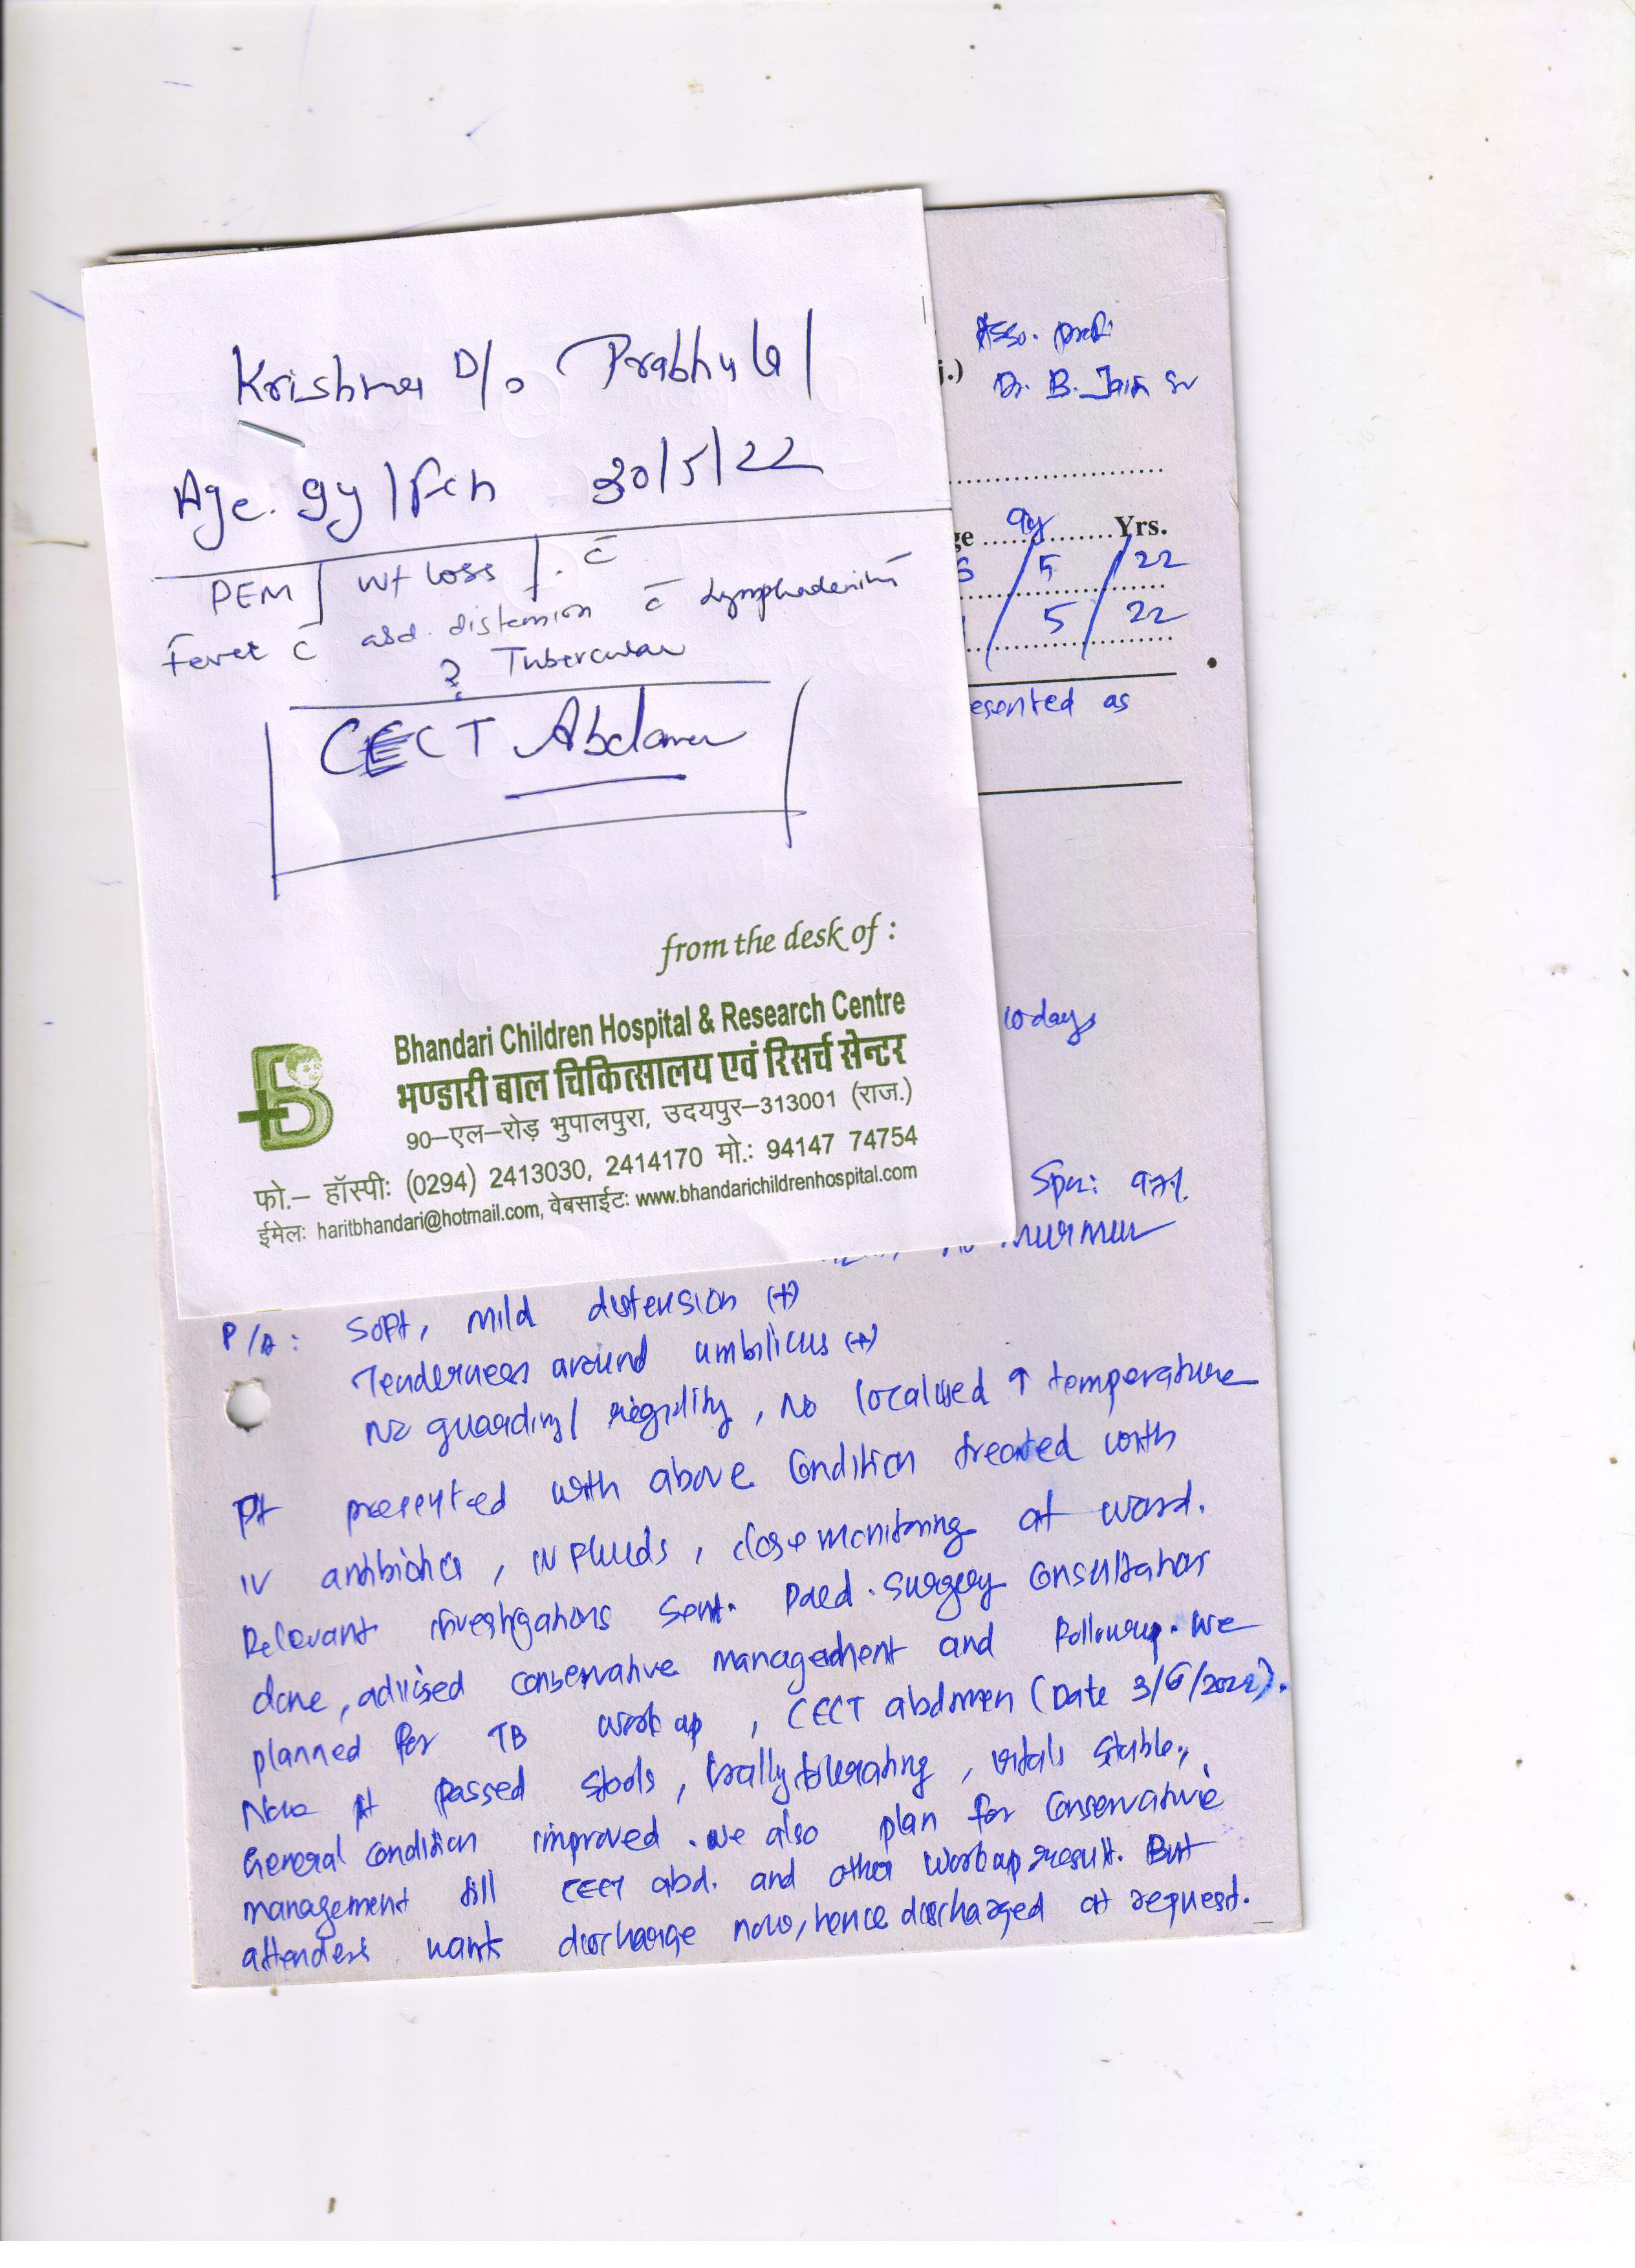 Krishna D/o Prabhu lal
Age. 9y / Fch 30/5/22
PEM / wt loss / . c̄
Fever c̄ abd. distension c̄ Lymphadenitis
? Tubercular
CECT Abdomen
from the desk of :
Bhandari Children Hospital & Research Centre
भण्डारी बाल चिकित्सालय एवं रिसर्च सेन्टर
90-एल-रोड़ भुपालपुरा, उदयपुर-313001 (राज.)
फो.- हॉस्पी: (0294) 2413030, 2414170 मो.: 94147 74754
ईमेल: haritbhandari@hotmail.com, वेबसाईट: www.bhandarichildrenhospital.com
Asso. prof.
j.) Dr. B. Jain Sr
ge 9y Yrs.
/ 5 / 22
/ 5 / 22
esented as
10days
Spo2: 97%
murmur
P/A: Soft, mild distension (+)
Tenderness around umbilicus (+)
No guarding/ rigidity, No localised ↑ temperature
Pt presented with above Condition treated with
IV antibiotics, IV fluids, close monitoring at ward.
Relevant investigations sent. Paed. Surgery Consultation
done, adviced conservative management and followup. We
planned for TB work up, CECT abdomen (Date 3/6/2022).
Now pt passed stools, orally tolerating, vitals stable,
General condition improved. we also plan for Conservative
management till CECT abd. and other workup result. But
attenders wants discharge now, hence discharged at request.